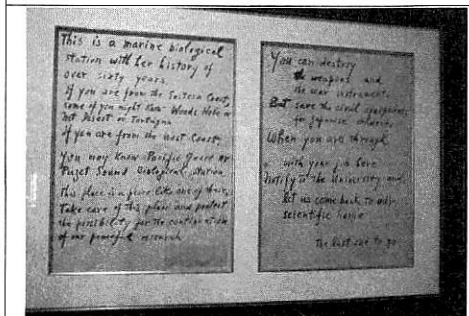 This is a marine biological
station with her history of
over sixty years.
If you are from the Eastern Coast,
some of you might know Woods Hole or
Mt Desert or Tortugas.
If you are from the West Coast,
You may know Pacific Grove or
Puget Sound Biological Station.
This place is a place like one of these.
Take care of this place and protect
the possibility for the continuation
of our peaceful research
You can destroy
the weapons and
the war instruments
But save the civil equipments
for Japanese
When you are through
with your job here
Notify to the University and
let us come back to our
scientific home
The last one to go